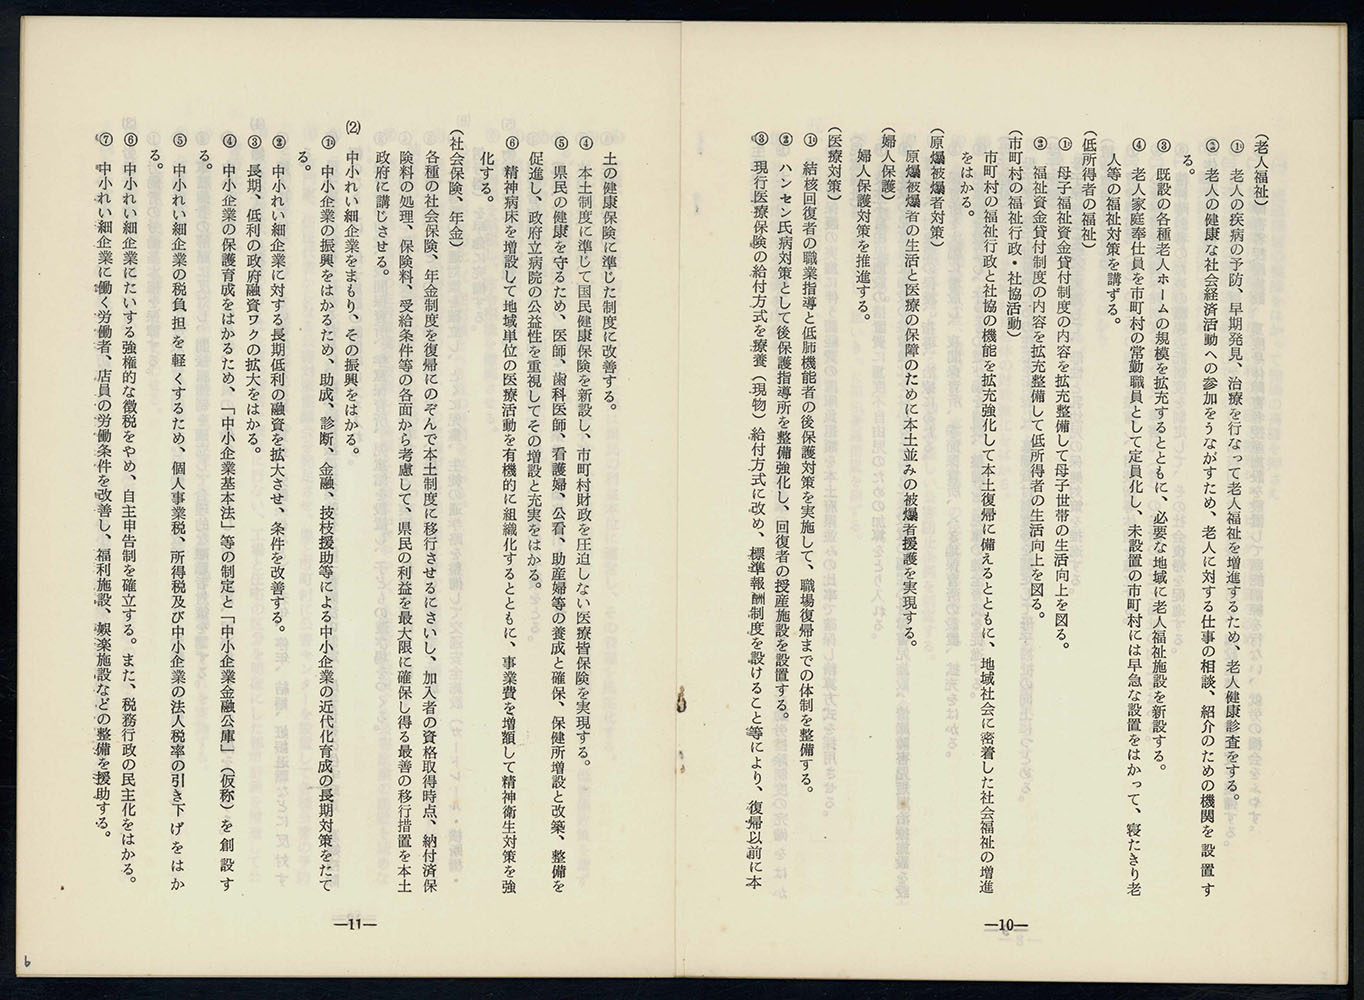 （老人福祉）
① 老人の疾病の予防、早期発見、治療を行なって老人福祉を増進するため、老人健康診査をする。
② 老人の健康な社会経済活動への参加をうながすため、老人に対する仕事の相談、紹介のための機関を設置す
る。
③ 既設の各種老人ホームの規模を拡充するとともに、必要な地域に老人福祉施設を新設する。
④ 老人家庭奉仕員を市町村の常勤職員として定員化し、未設置の市町村には早急な設置をはかって、寝たきり老
人等の福祉対策を講ずる。
（低所得者の福祉）
① 母子福祉資金貸付制度の内容を拡充整備して母子世帯の生活向上を図る。
② 福祉資金貸付制度の内容を拡充整備して低所得者の生活向上を図る。
（市町村の福祉行政・社協活動）
市町村の福祉行政と社協の機能を拡充強化して本土復帰に備えるとともに、地域社会に密着した社会福祉の増進
をはかる。
（原爆被爆者対策）
原爆被爆者の生活と医療の保障のために本土並みの被爆者援護を実現する。
（婦人保護）
婦人保護対策を推進する。
（医療対策）
① 結核回復者の職業指導と低肺機能者の後保護対策を実施して、職場復帰までの体制を整備する。
② ハンセン氏病対策として後保護指導所を整備強化し、回復者の授産施設を設置する。
③ 現行医療保険の給付方式を療養（現物）給付方式に改め、標準報酬制度を設けること等により、復帰以前に本
—10—
土の健康保険に準じた制度に改善する。
④ 本土制度に準じて国民健康保険を新設し、市町村財政を圧迫しない医療皆保険を実現する。
⑤ 県民の健康を守るため、医師、歯科医師、看護婦、公看、助産婦等の養成と確保、保健所増設と改築、整備を
促進し、政府立病院の公益性を重視してその増設と充実をはかる。
⑥ 精神病床を増設して地域単位の医療活動を有機的に組織化するとともに、事業費を増額して精神衛生対策を強
化する。
（社会保険、年金）
各種の社会保険、年金制度を復帰にのぞんで本土制度に移行させるにさいし、加入者の資格取得時点、納付済保
険料の処理、保険料、受給条件等の各面から考慮して、県民の利益を最大限に確保し得る最善の移行措置を本土
政府に講じさせる。
(2) 中小れい細企業をまもり、その振興をはかる。
① 中小企業の振興をはかるため、助成、診断、金融、技枝援助等による中小企業の近代化育成の長期対策をたて
る。
② 中小れい細企業に対する長期低利の融資を拡大させ、条件を改善する。
③ 長期、低利の政府融資ワクの拡大をはかる。
④ 中小企業の保護育成をはかるため、「中小企業基本法」等の制定と「中小企業金融公庫」（仮称）を創設す
る。
⑤ 中小れい細企業の税負担を軽くするため、個人事業税、所得税及び中小企業の法人税率の引き下げをはか
る。
⑥ 中小れい細企業にたいする強権的な徴税をやめ、自主申告制を確立する。また、税務行政の民主化をはかる。
⑦ 中小れい細企業に働く労働者、店員の労働条件を改善し、福利施設、娯楽施設などの整備を援助する。
—11—
6